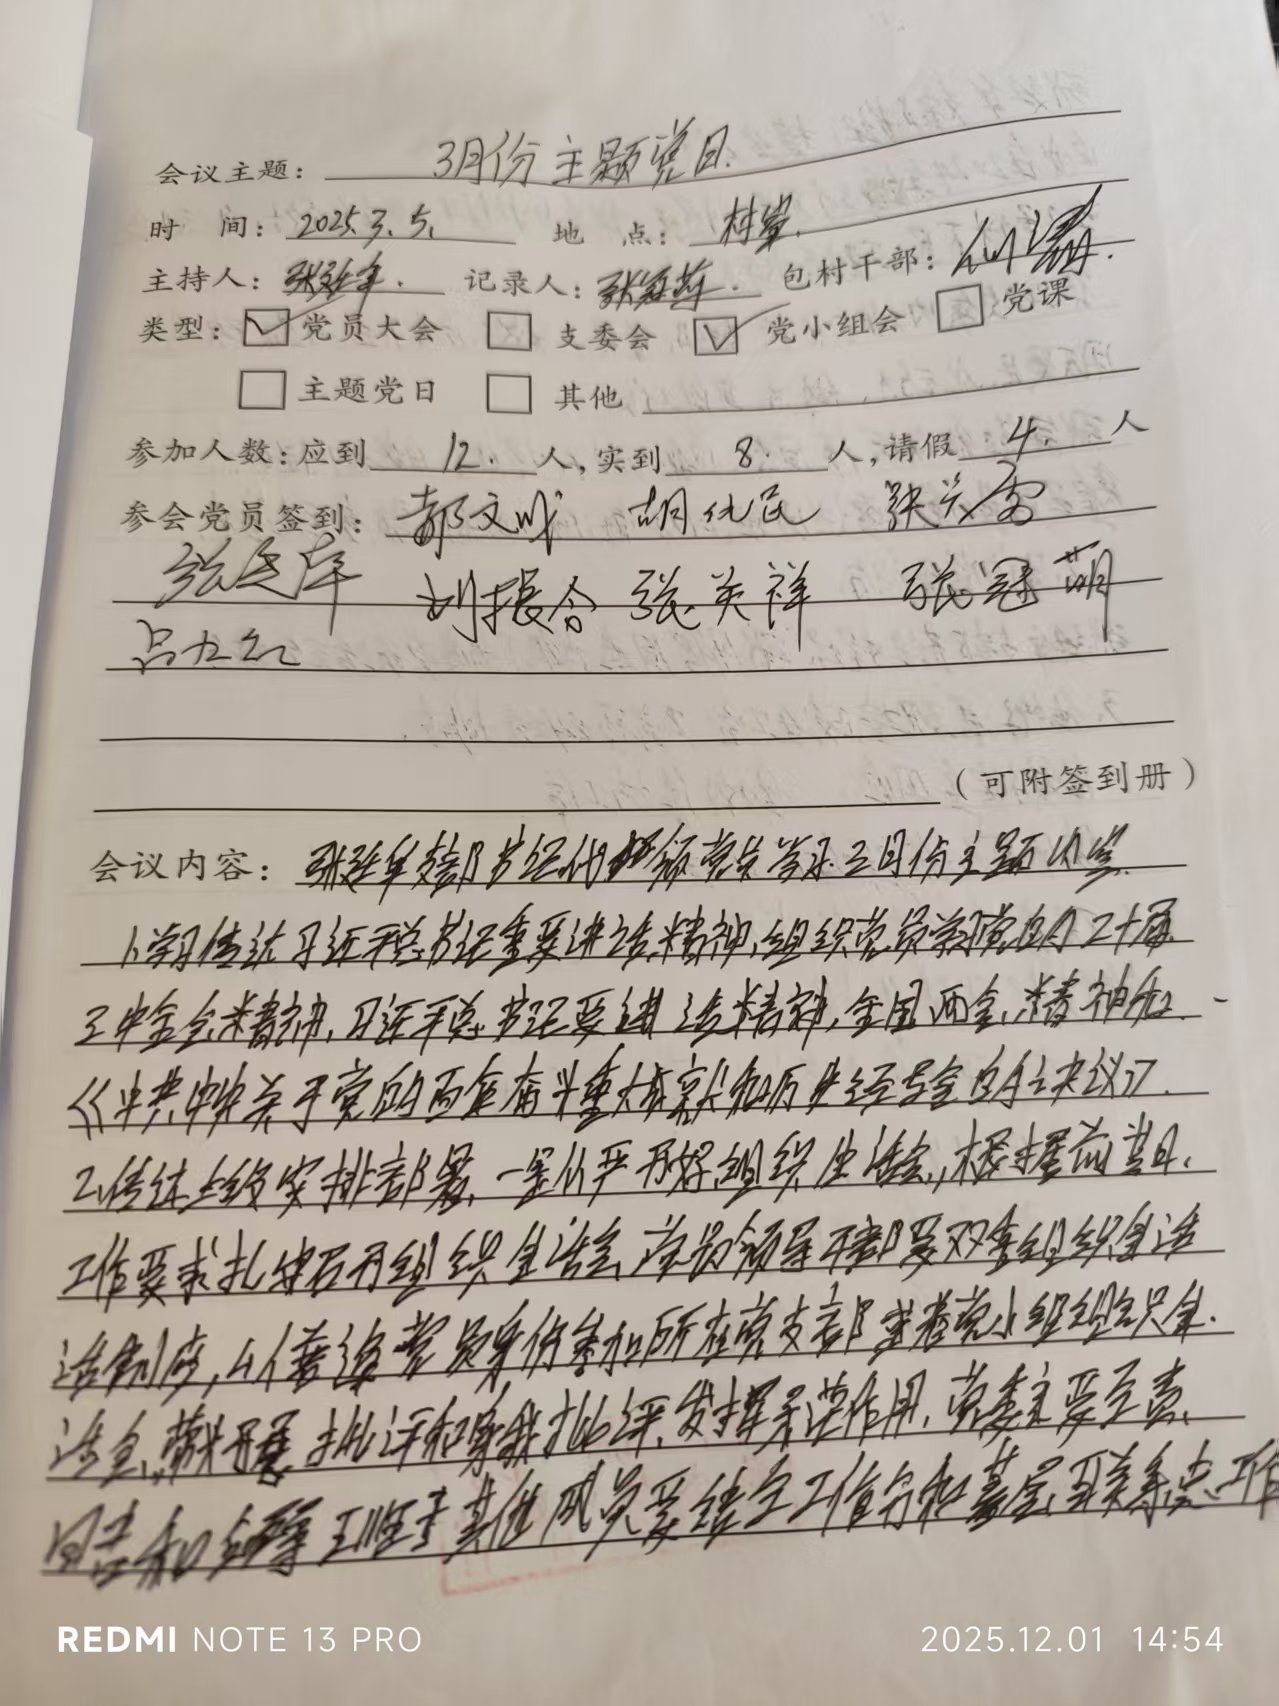 会议主题： 3月份主题党日.
时 间： 2025.3.5. 地 点： 村室.
主持人： 张延年. 记录人： 张冠萌. 包村干部：
类型： ☑ 党员大会 □ 支委会 ☑ 党小组会 □ 党课
□ 主题党日 □ 其他
参加人数：应到 12. 人，实到 8. 人，请假 4. 人
参会党员签到： 郝文成 胡化民
刘振合 张英祥 张冠萌
（可附签到册）
会议内容： 张延年支部书记代领党员学习三月份主题内容.
1.学习传达习近平总书记重要讲话精神,组织党员学习党的二十届
三中全会精神,习近平总书记要讲话精神,全国两会精神和
《中共中央关于党的百年奋斗重大成就和历史经验的决议》.
2.传达上级安排部署,一是从严开好组织生活会,根据前期
工作要求扎实召开组织生活会,党员领导干部要双重组织生活
活制度,以普通党员身份参加所在党支部或者党小组组织生
活会,带头开展批评和自我批评,发挥示范作用,党委主要负责
同志和 其他成员要结合工作分和基层联系点工作
REDMI NOTE 13 PRO 2025.12.01 14:54